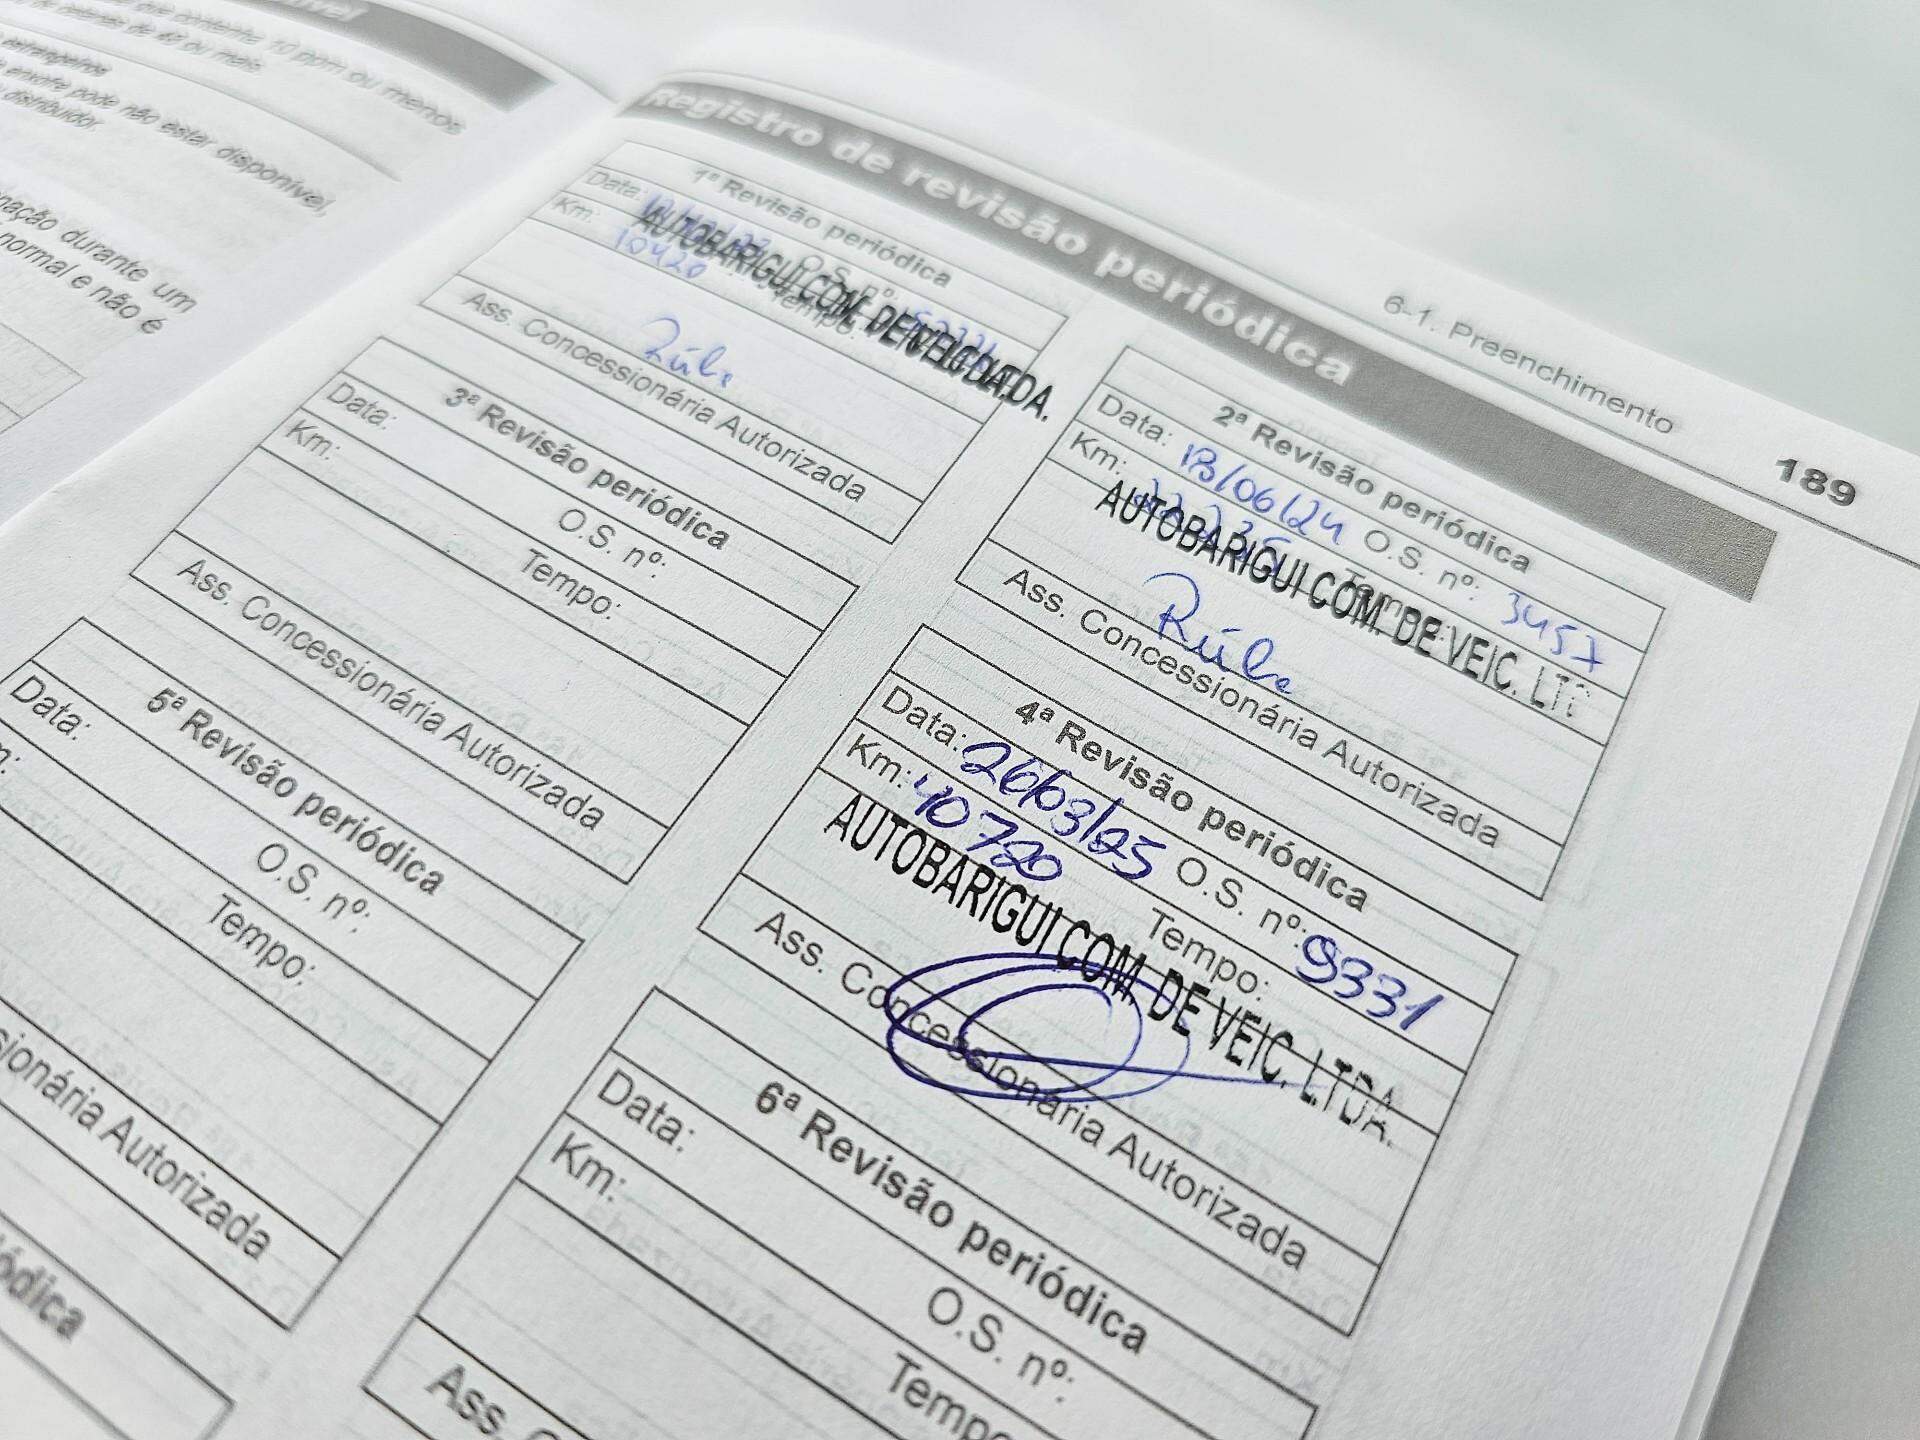 que contenha 10 ppm ou menos
de cetanas de 48 ou mais.
estrangeiros
enxofre pode não estar disponível,
distribuidor.
durante um
normal e não é
6-1. Preenchimento
189
Registro de revisão periódica
1ª Revisão periódica
Data:
O.S. nº:
Km: 10420
Tempo:
AUTOBARIGUI COM. DE VEIC. LTDA.
Ass. Concessionária Autorizada
2ª Revisão periódica
Data: 18/06/24 O.S. nº: 3457
Km:
Tempo:
AUTOBARIGUI COM. DE VEIC. LTD
Ass. Concessionária Autorizada
3ª Revisão periódica
Data:
O.S. nº:
Km:
Tempo:
Ass. Concessionária Autorizada
4ª Revisão periódica
Data: 26/03/25 O.S. nº: 9331
Km: 40720
Tempo:
AUTOBARIGUI COM. DE VEIC. LTDA.
Ass. Concessionária Autorizada
5ª Revisão periódica
Data:
O.S. nº:
Tempo:
Autorizada
6ª Revisão periódica
Data:
O.S. nº:
Km:
Tempo
Ass.